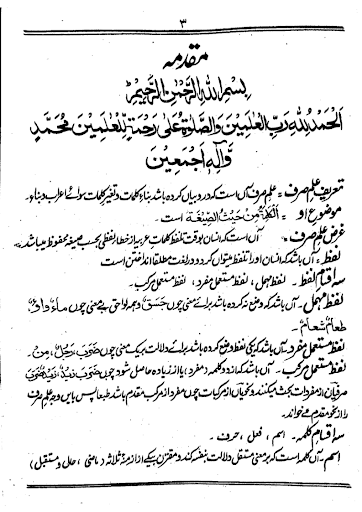 ۳
مقدمہ
بسم اللہ الرحمٰن الرحیم
اَلْحَمْدُ لِلّٰہِ رَبِّ الْعٰلَمِیْنَ وَالصَّلٰوۃُ عَلٰی رَحْمَۃٍ لِّلْعٰلَمِیْنَ مُحَمَّدٍ
وَّاٰلِہٖ اَجْمَعِیْنَ
تعریف علم صرف = علم صرف آں است کہ در و بیاں کردہ باشد بناء کلمات و تغیر کلمات سوائے اعراب و بناء۔
موضوع او = اَلْکَلِمَۃُ مِنْ حَیْثُ الصِّیْغَۃِ است۔
غرض علم صرف = آں است کہ انسان بوقت تلفظ کلمات عربیہ از خطا لفظی بحسب صیغہ محفوظ میباشد۔
لفظ = آں باشد کہ انسان اورا تلفظ میتواں کرد و در لغت مطلقا انداختن است
سہ اقسام لفظ۔ لفظ مہمل، لفظ مستعمل مفرد، لفظ مستعمل مرکب۔
لفظ مہمل۔ آں باشد کہ وضع نہ کردہ باشد برائے معنی چوں جسق و بہمراہی بے معنی چوں ماءٌ واءٌ،
طعامٌ شعامٌ۔
لفظ مستعمل مفرد۔ آں باشد کہ یکی لفظ وضع کردہ باشد برائے دلالت بر یک معنی چوں ضَرَبَ، رَجُلٌ، مِنْ۔
لفظ مستعمل مرکب۔ آں باشد کہ از دو کلمہ (مفرد) یا از زیادہ حاصل شود چوں ضَرَبَ زیدٌ، زیدٌ ضَرَبَ
صرفیاں از مفردات بحث میکنند و نحویاں از مرکبات چوں مفرد از مرکب مقدم باشد طبعا پس بایں وجہ علم صرف
را از نحو مقدم می خواند۔
سہ اقسام کلمہ۔ اسم، فعل، حرف۔
اسم = آں کلمہ است کہ بر معنی مستقل دلالت بنفسہ کند و مقترن بیکے از ازمنہ ثلاثہ (ماضی، حال و مستقبل)